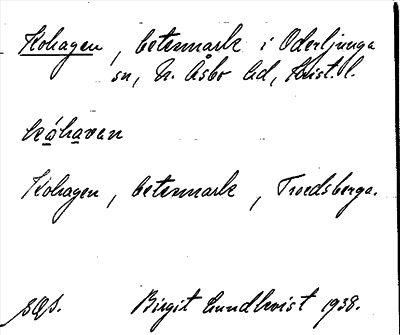 Kohagen, betesmark i Oderljunga
sn, N. Åsbo hd, Krist. l.
kåhaven
Kohagen, betesmark, Troedsberga.
SOA. Birgit Lundkvist 1938.